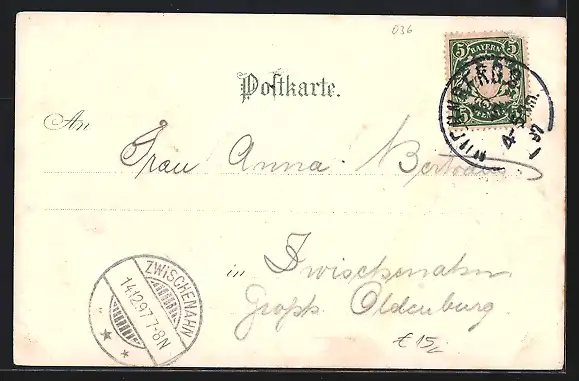 036
5 BAYERN 5
5 PFENNIG 5
Postkarte.
An
Frau Anna
in Zwischenahn
Großh. Oldenburg.
ZWISCHENAHN
14.12.97.7-8N
* *
€15,